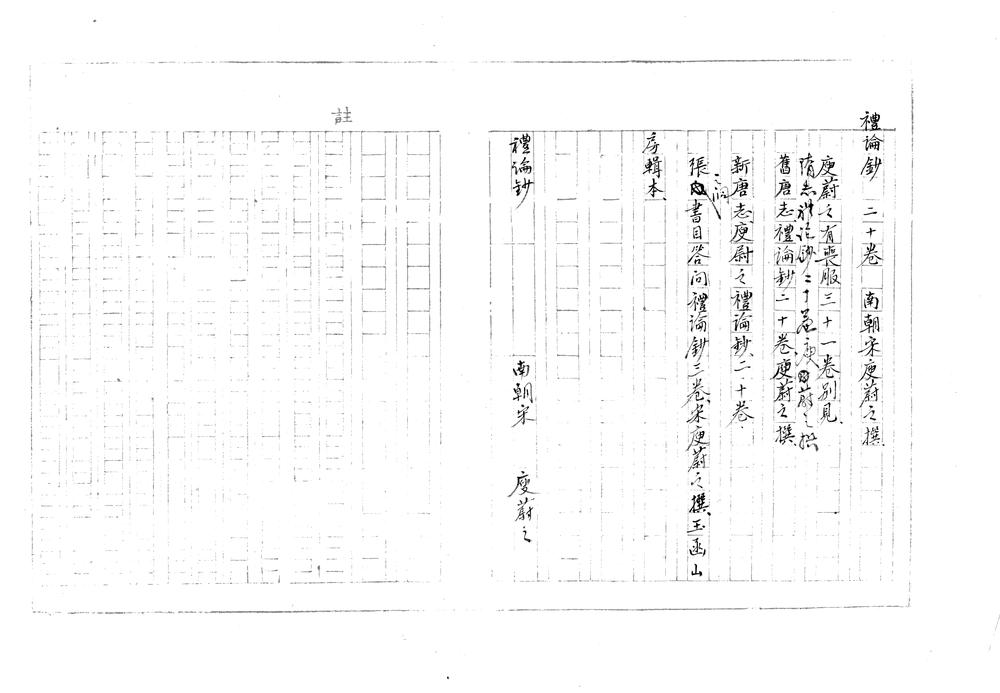 禮論鈔　二十卷　南朝宋庾蔚之撰
庾蔚之有喪服三十一卷別見
隋志禮論鈔二十卷庾蔚之撰
舊唐志禮論鈔二十卷庾蔚之撰
新唐志庾尉之禮論鈔二十卷
張之洞書目答问禮論鈔三卷宋庾蔚之撰玉函山
房輯本
禮論鈔　南朝宋　庾蔚之
註